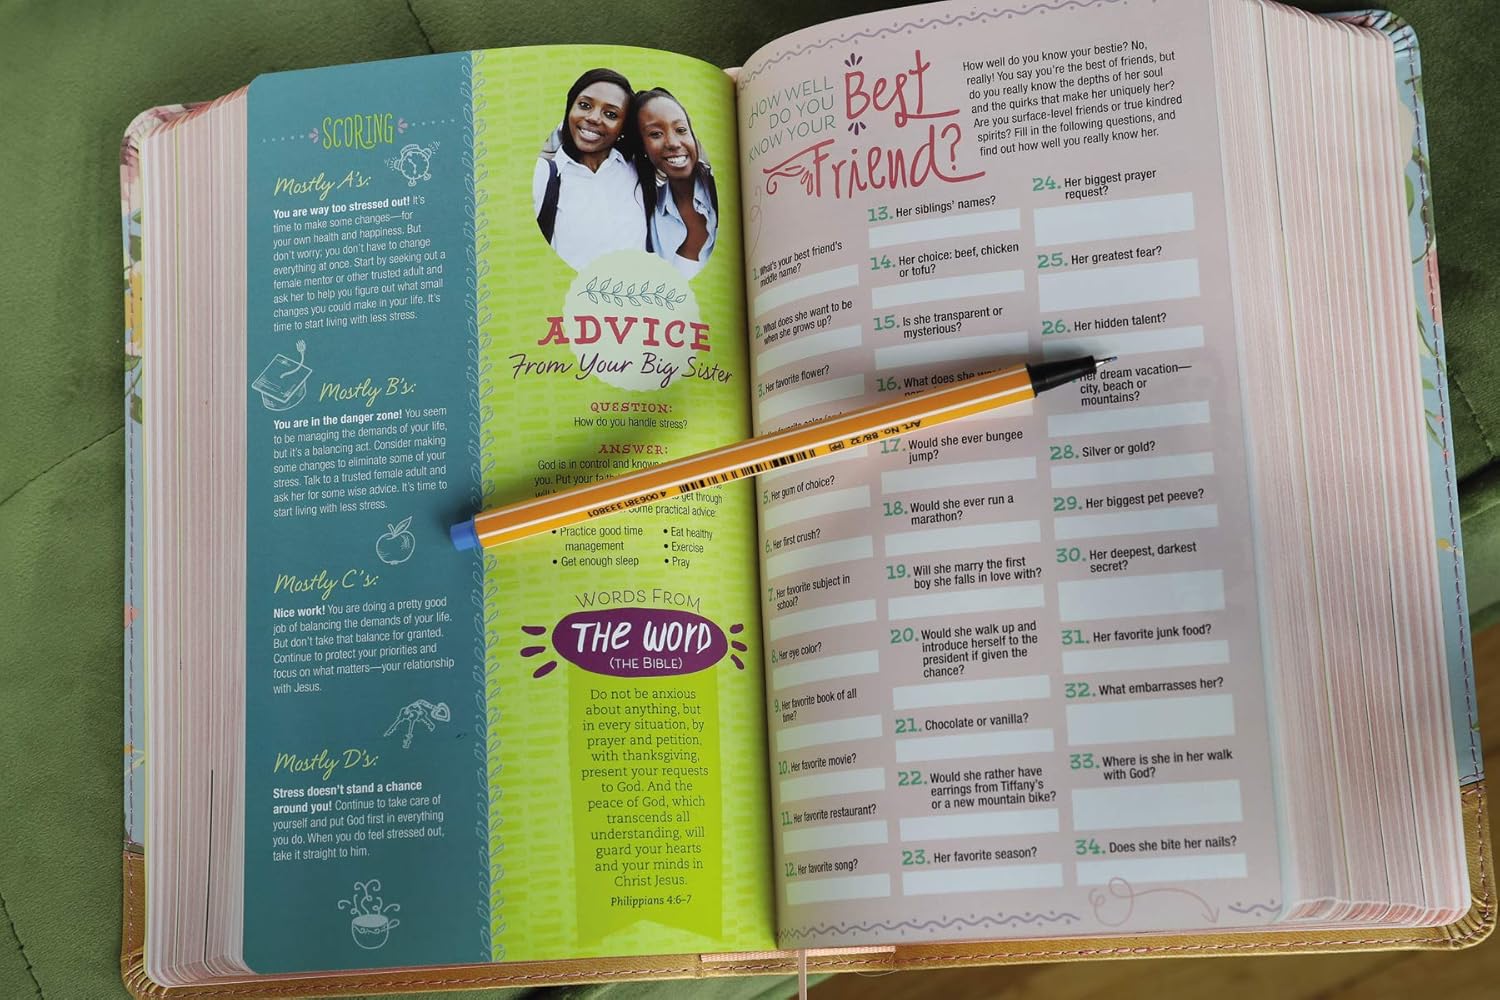 SCORING
Mostly A's:
You are way too stressed out! It's
time to make some changes—for
your own health and happiness. But
don't worry; you don't have to change
everything at once. Start by seeking out a
female mentor or other trusted adult and
ask her to help you figure out what small
changes you could make in your life. It's
time to start living with less stress.
Mostly B's:
You are in the danger zone! You seem
to be managing the demands of your life,
but it's a balancing act. Consider making
some changes to eliminate some of your
stress. Talk to a trusted female adult and
ask her for some wise advice. It's time to
start living with less stress.
Mostly C's:
Nice work! You are doing a pretty good
job of balancing the demands of your life.
But don't take that balance for granted.
Continue to protect your priorities and
focus on what matters—your relationship
with Jesus.
Mostly D's:
Stress doesn't stand a chance
around you! Continue to take care of
yourself and put God first in everything
you do. When you do feel stressed out,
take it straight to him.
ADVICE
From Your Big Sister
QUESTION:
How do you handle stress?
ANSWER:
God is in control and
you. Put your
get through
some practical advice:
• Practice good time
management
• Get enough sleep
• Eat healthy
• Exercise
• Pray
WORDS FROM
THE WORD
(THE BIBLE)
Do not be anxious
about anything, but
in every situation, by
prayer and petition,
with thanksgiving,
present your requests
to God. And the
peace of God, which
transcends all
understanding, will
guard your hearts
and your minds in
Christ Jesus.
Philippians 4:6–7
HOW WELL
DO YOU
KNOW YOUR
Best
Friend?
How well do you know your bestie? No,
really! You say you're the best of friends, but
do you really know the depths of her soul
and the quirks that make her uniquely her?
Are you surface-level friends or true kindred
spirits? Fill in the following questions, and
find out how well you really know her.
1. What's your best friend's
middle name?
2. What does she want to be
when she grows up?
3. Her favorite flower?
favorite color
5. Her gum of choice?
6. Her first crush?
7. Her favorite subject in
school?
8. Her eye color?
9. Her favorite book of all
time?
10. Her favorite movie?
11. Her favorite restaurant?
12. Her favorite song?
13. Her siblings' names?
14. Her choice: beef, chicken
or tofu?
15. Is she transparent or
mysterious?
16. What does she
17. Would she ever bungee
jump?
18. Would she ever run a
marathon?
19. Will she marry the first
boy she falls in love with?
20. Would she walk up and
introduce herself to the
president if given the
chance?
21. Chocolate or vanilla?
22. Would she rather have
earrings from Tiffany's
or a new mountain bike?
23. Her favorite season?
24. Her biggest prayer
request?
25. Her greatest fear?
26. Her hidden talent?
Her dream vacation—
city, beach or
mountains?
28. Silver or gold?
29. Her biggest pet peeve?
30. Her deepest, darkest
secret?
31. Her favorite junk food?
32. What embarrasses her?
33. Where is she in her walk
with God?
34. Does she bite her nails?
Art. No. 88/32
4 006381 333801